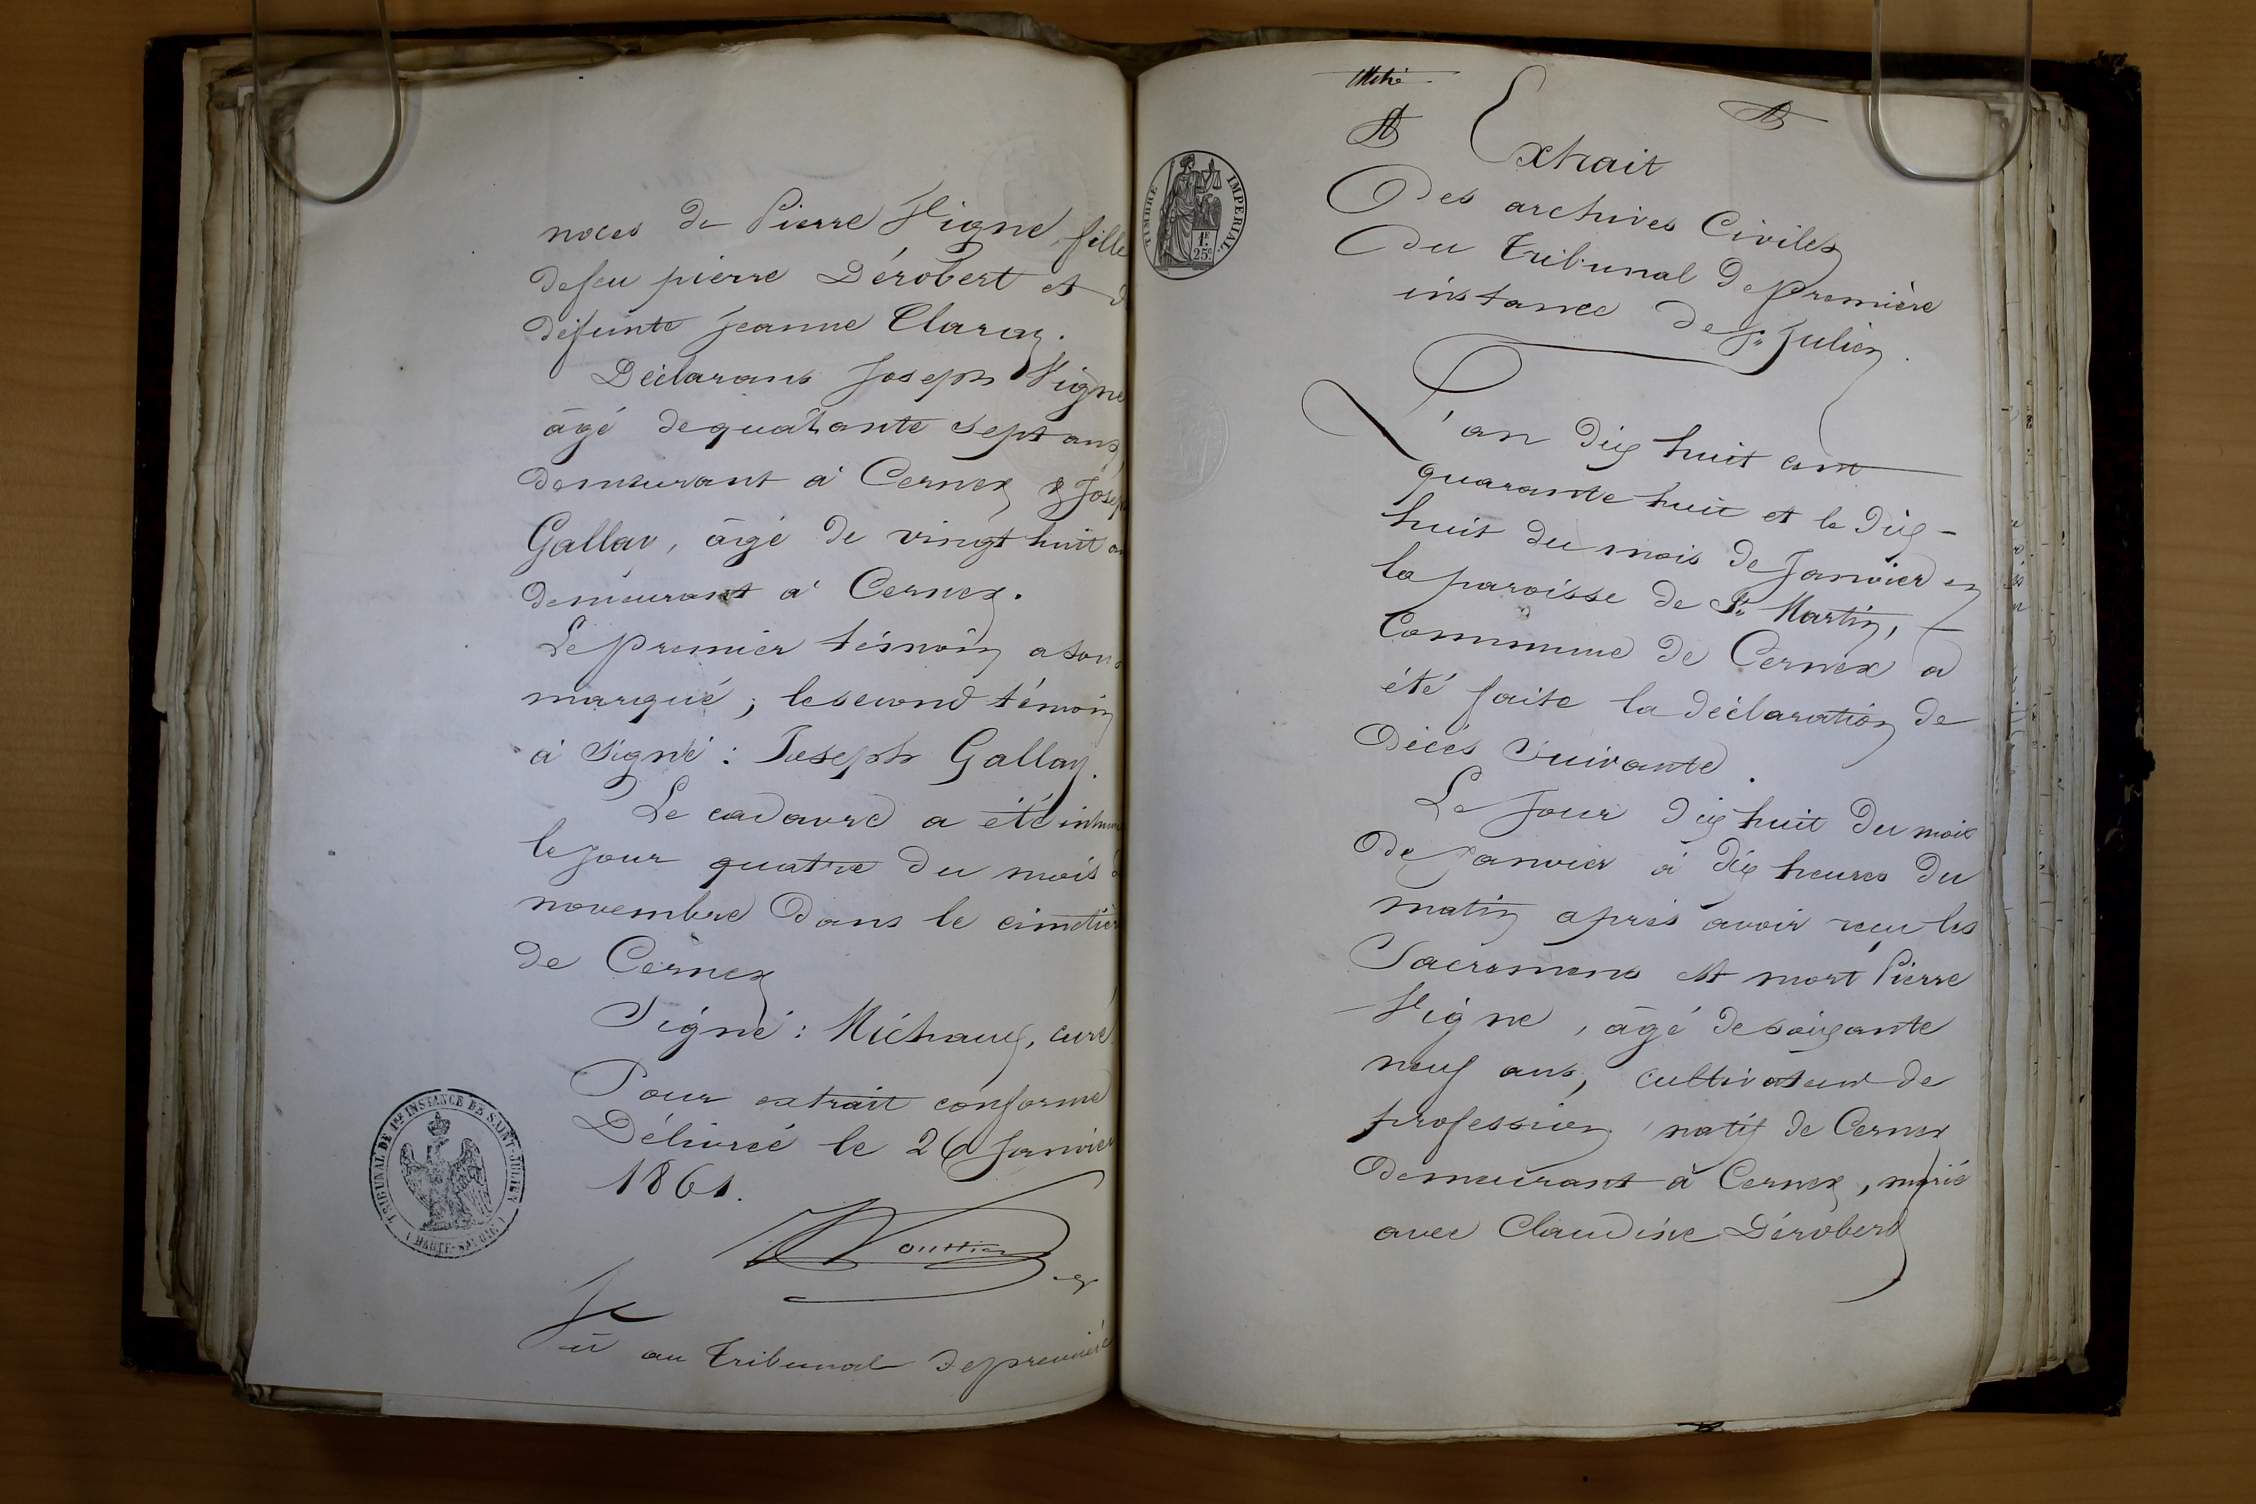 noces de Pierre Vigne, fille
de feu pierre Dérobert et d
défunte Jeanne Claray.
Déclarans Joseph Vigne
âgé de quarante sept ans,
demeurant à Cernex & Josep
Gallay, âgé de vingt huit an
demeurant à Cernex.
Le premier témoin a sous
marqué ; le second témoin
à signé : Joseph Gallay.
Le cadavre a été inhumé
le jour quatre du mois d
novembre dans le cimetière
de Cernex
Signé : Michaux, curé
Pour extrait conforme
Délivrée le 26 Janvier
1861.
TRIBUNAL DE 1ERE INSTANCE DE SAINT-JULIEN
( HAUTE-SAVOIE )
Vu au tribunal de première
Extrait
TIMBRE IMPERIAL.
1F.
25C.
Des archives Civiles
Du tribunal de première
instance de St Julien.
L'an dix huit cent
quarante huit et le dix-
huit du mois de Janvier en
la paroisse de St Martin,
Commune de Cernex a
été faite la déclaration de
Décès suivante.
Le jour dix huit du mois
de Janvier à dix heures du
matin après avoir reçu les
Sacremens est mort Pierre
Vigne, âgé de soixante
neuf ans, cultivateur de
profession, natif de Cernex
demeurant à Cernex, marié
avec Claudine Dérobert